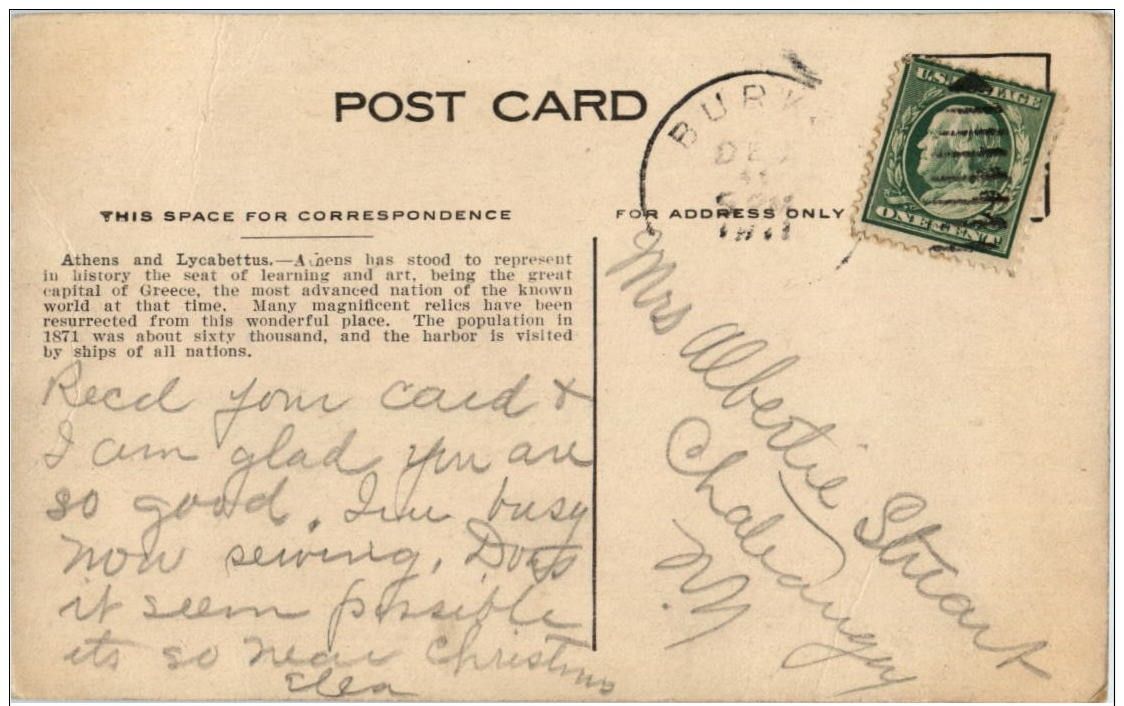 POST CARD
BURK
DEC
11
5 PM
1911
U.S. POSTAGE
ONE CENT
THIS SPACE FOR CORRESPONDENCE
FOR ADDRESS ONLY
Athens and Lycabettus.—Athens has stood to represent
in history the seat of learning and art, being the great
capital of Greece, the most advanced nation of the known
world at that time. Many magnificent relics have been
resurrected from this wonderful place. The population in
1871 was about sixty thousand, and the harbor is visited
by ships of all nations.
Recd your card &
I am glad you are
so good. Im busy
now sewing. Does
it seem possible
its so near Christmas
Mrs Albertie Stuart
Chateaugay
N.Y